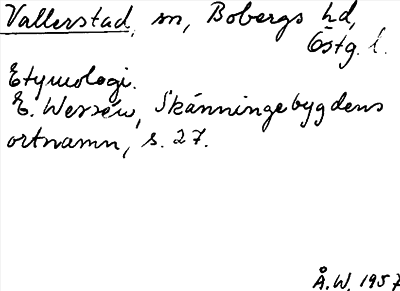 Vallerstad, sn, Bobergs hd,
Östg. l.
Etymologi.
E. Wessén, Skänningebygdens
ortnamn, s. 27.
Å. W. 1957